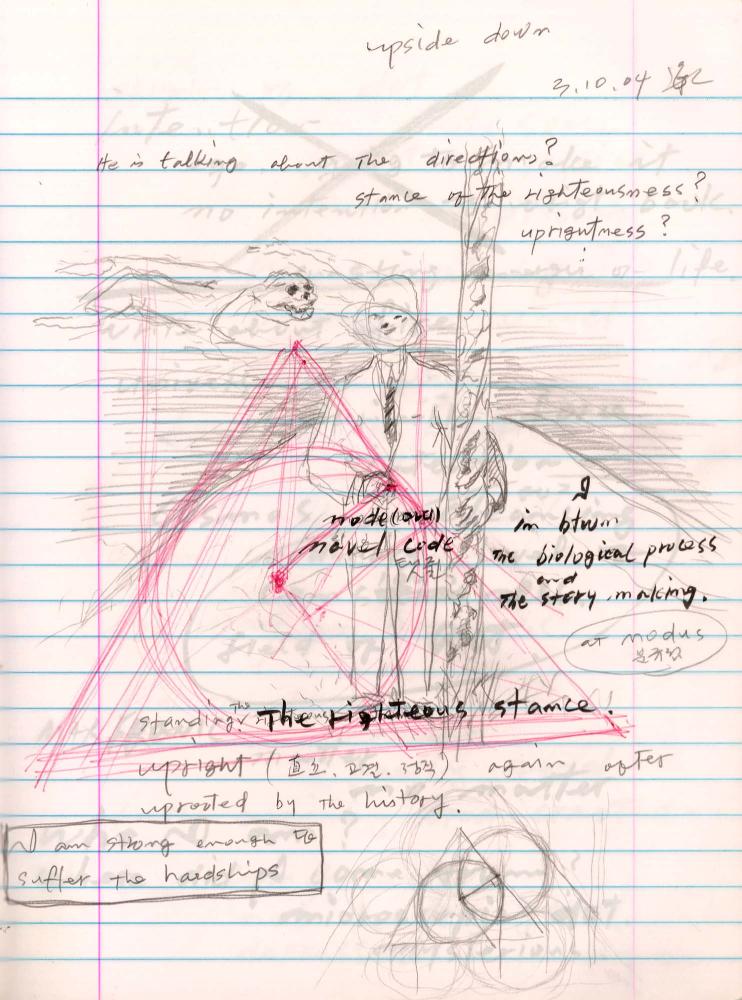 upside down
3.10.04
He is talking about The directions?
stance of The righteousness?
uprightness?
node(oval)
navel code
탯줄
in btwn
The biological process
and
The story making.
at modus
standing The righteous The righteous stance.
upright (直立. 고결. 정직) again after
uprooted by The history.
I am strong enough to
suffer the hardships